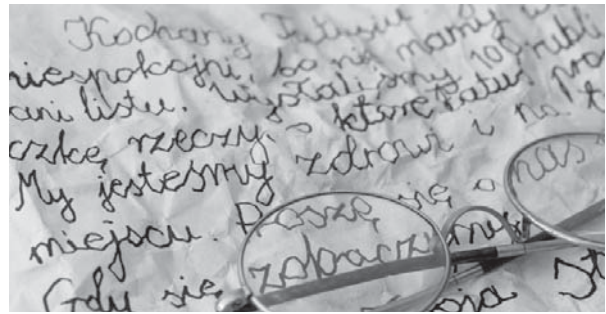 Kochany Tatusiu
niespokojni, bo nie mamy
ani listu. Wysłaliśmy 100 rubli
czkę rzeczy, o które Tatuś
My jesteśmy zdrowi i na
miejscu. Proszę się o nas
Gdy się zobaczymy